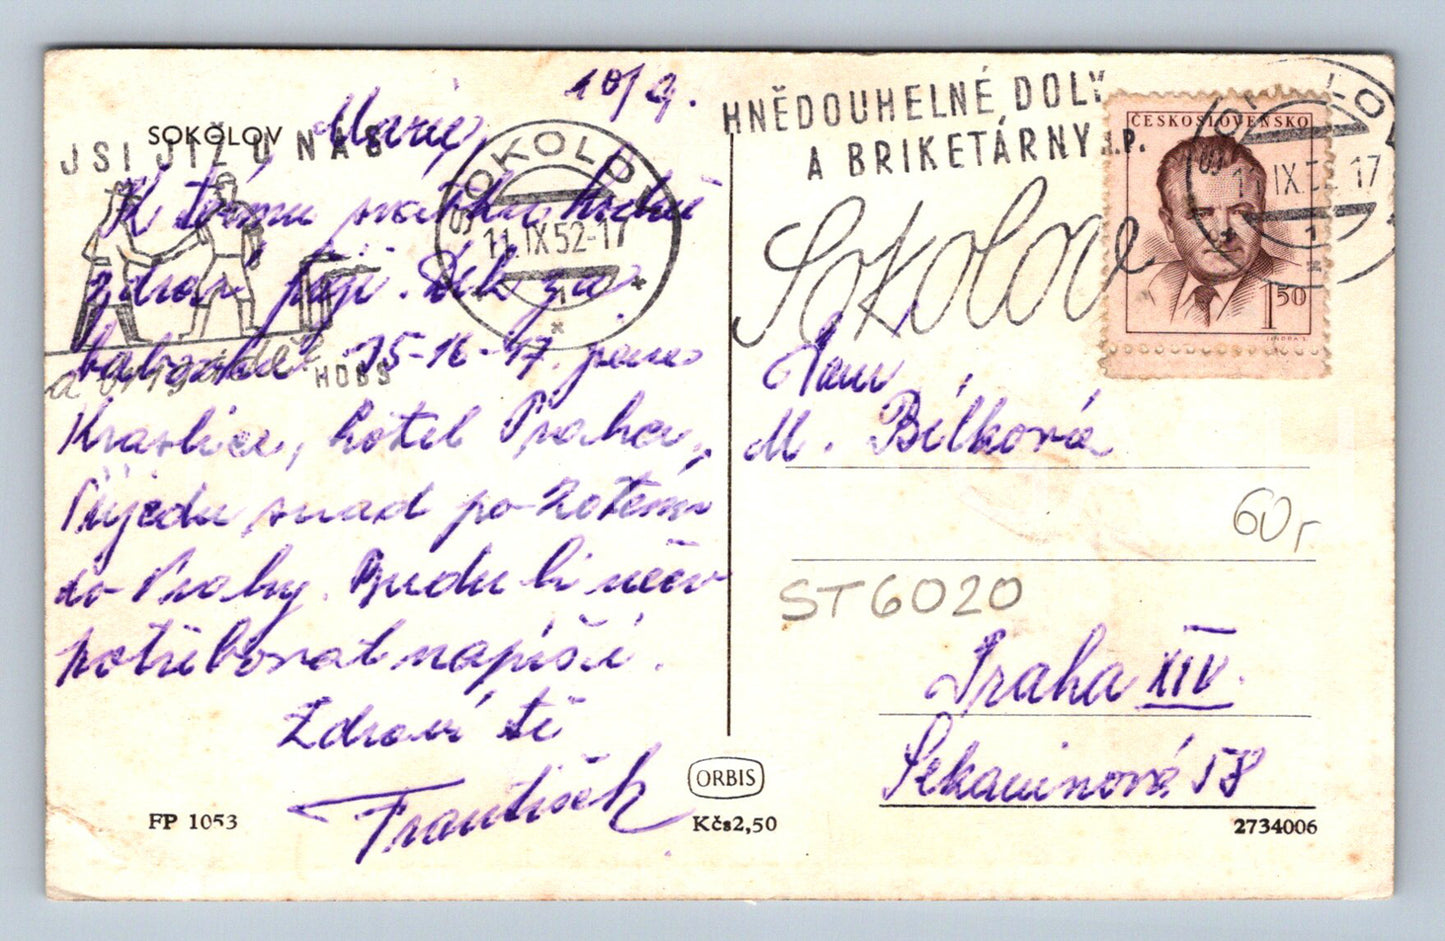 SOKOLOV
10/9.
Marie,
K tvému svátku hodně
zdraví přeji. Dík za
15-16-17. jsem
Kraslice, hotel Praha,
Přijedu snad po-
do Prahy. Budu li něco
potřebovat napíši.
Zdraví tě
František
JSI JIŽ U NÁS
a brigádě?
HDBS
SOKOLOV
11.IX.52-17
1
HNĚDOUHELNÉ DOLY
A BRIKETÁRNY N.P.
Sokolov
ČESKOSLOVENSKO
1 50
11.IX.52-17
1
M. Bílková
60,-
ST6020
Praha XIV.
Sekaninová 58
ORBIS
FP 1053
Kčs 2,50
2734006